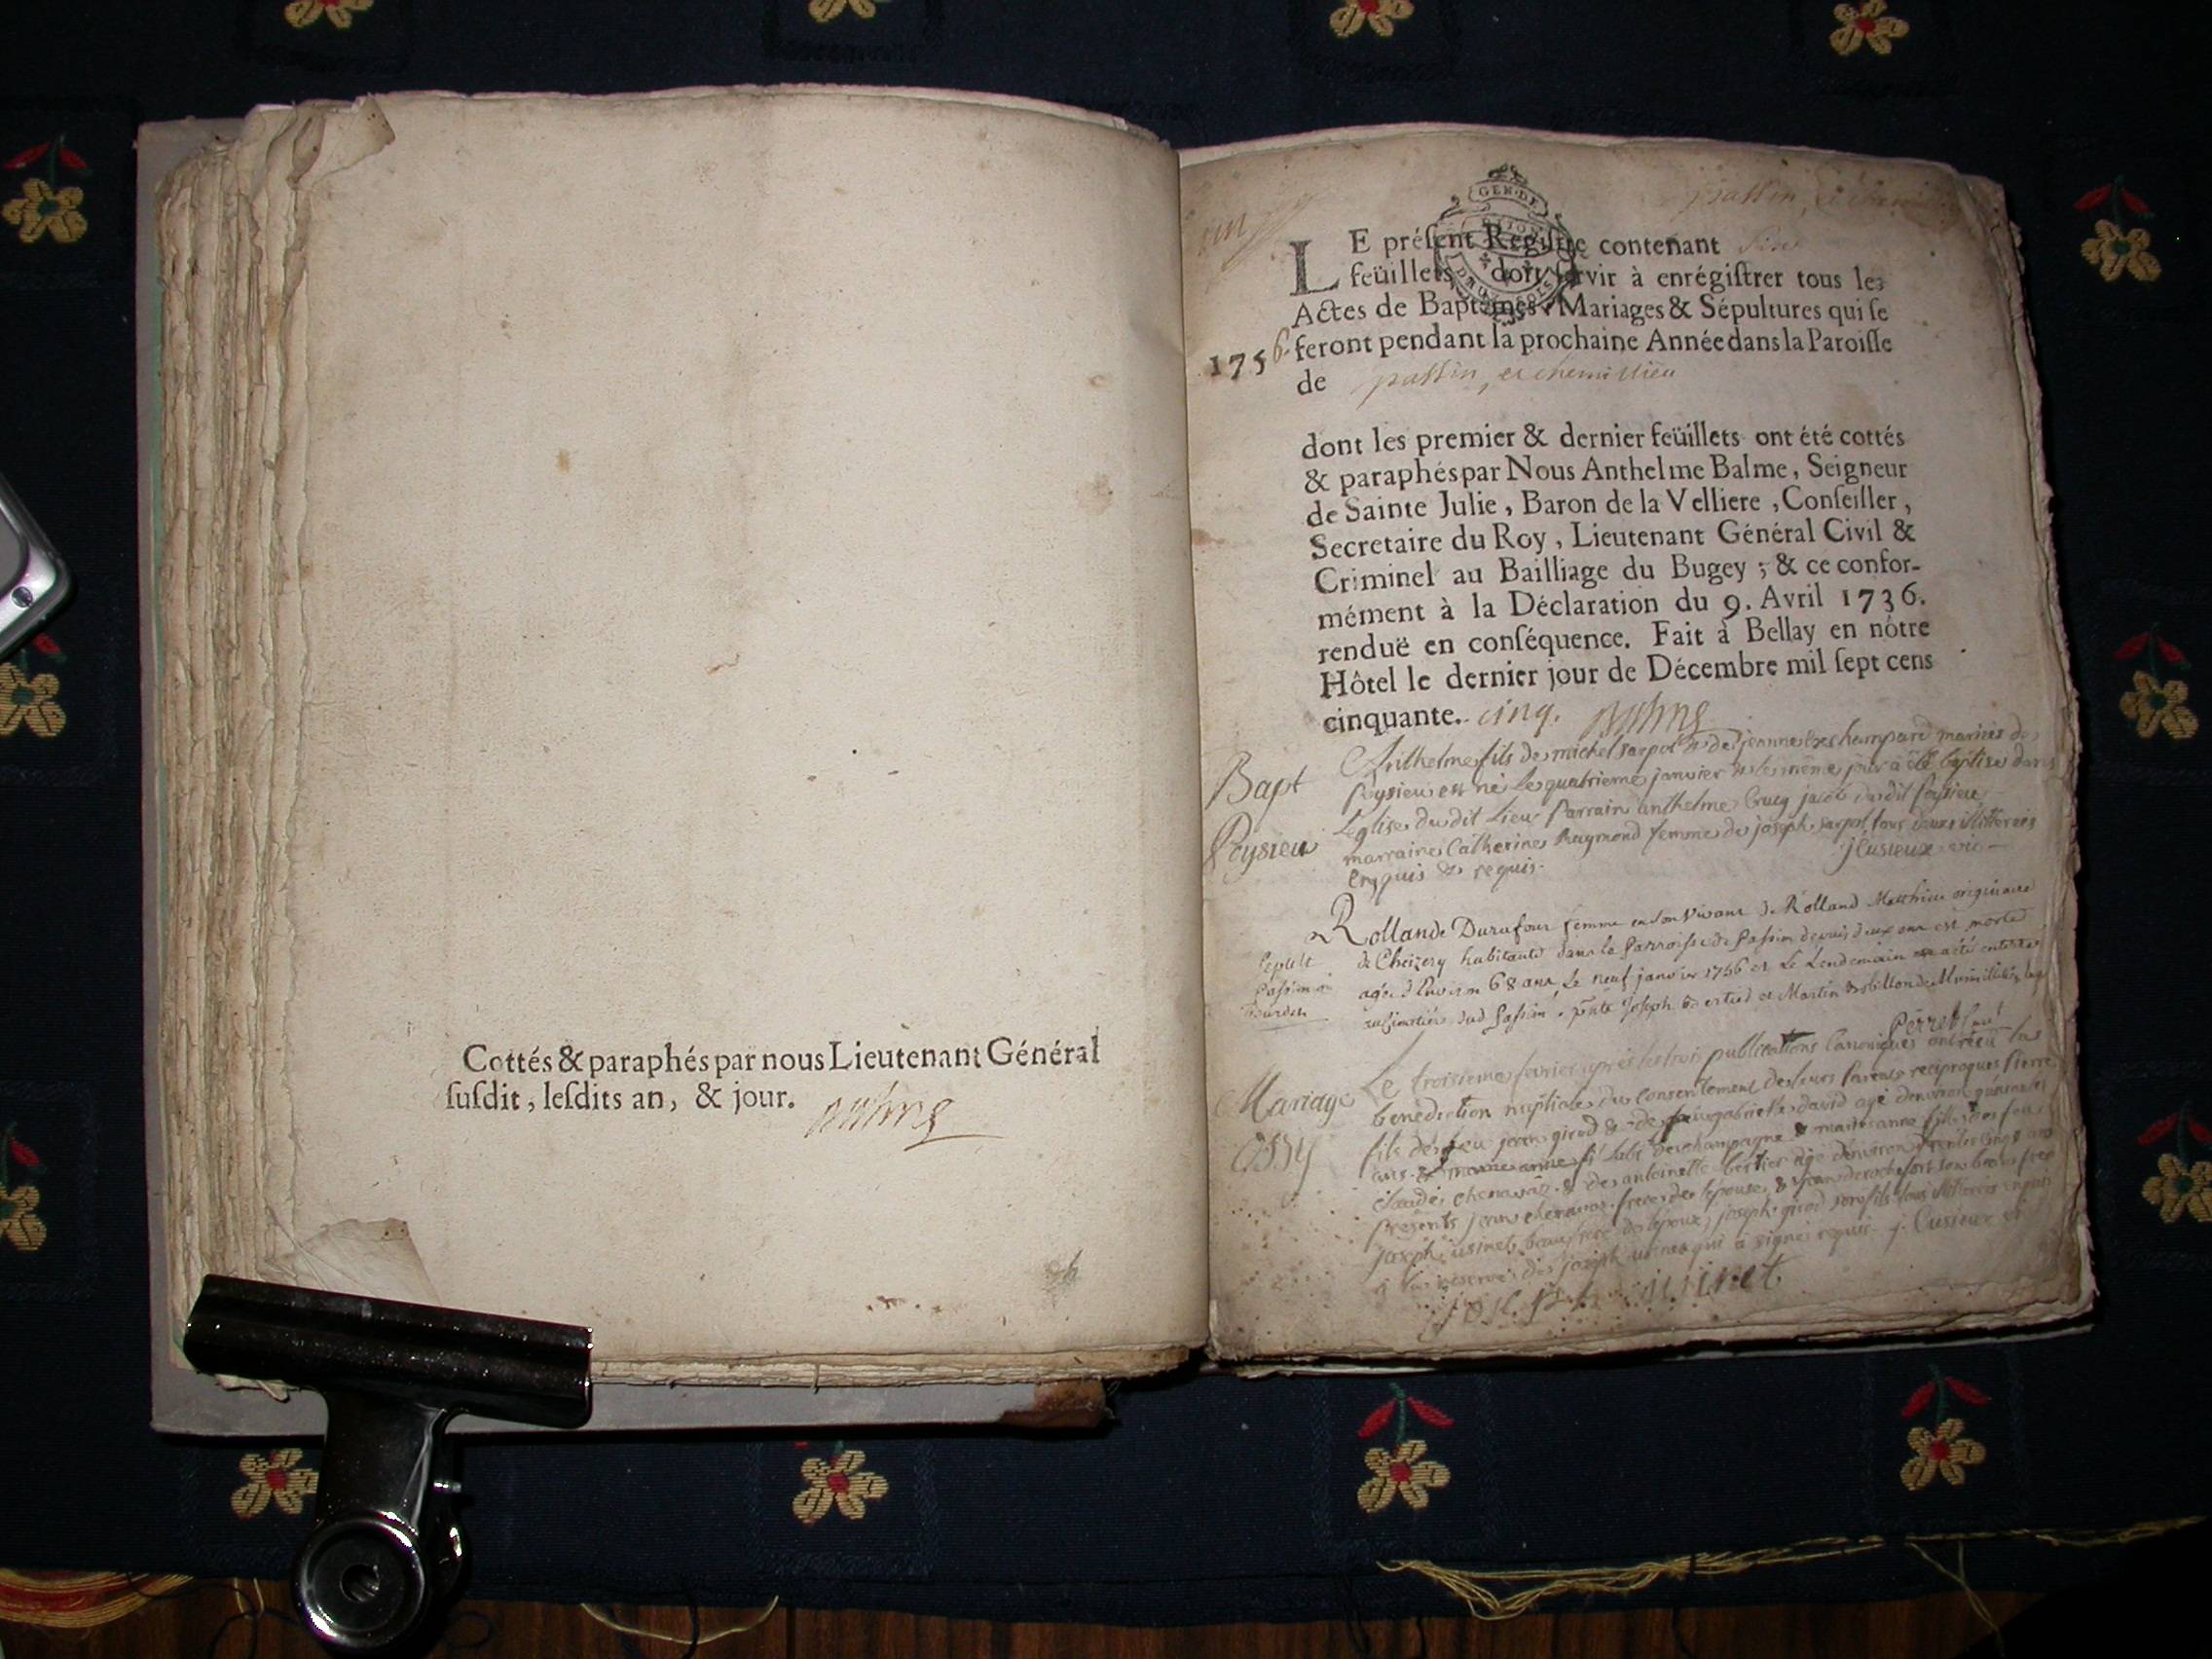 Cottés & paraphés par nous Lieutenant Général
ſuſdit, leſdits an, & jour.
GEN. DE
passin, et chemillieu
LE préſent Regiſtre contenant
feüillets, doit ſervir à enrégiſtrer tous les
Actes de Baptêmes, Mariages & Sépultures qui ſe
1756. feront pendant la prochaine Année dans la Paroiſſe
de passin, et chemillieu
dont les premier & dernier feüillets ont été cottés
& paraphés par Nous Anthelme Balme, Seigneur
de Sainte Julie, Baron de la Velliere, Conſeiller,
Secretaire du Roy, Lieutenant Général Civil &
Criminel au Bailliage du Bugey; & ce confor-
mément à la Déclaration du 9. Avril 1736.
renduë en conſéquence. Fait à Bellay en nôtre
Hôtel le dernier jour de Décembre mil ſept cens
cinquante. cinq. Balme
Bapt
Poysieu
Anthelme fils de michel sarpol & de jeanne mariés de
poysieu est né le quatrieme janvier & le même jour a été baptisé dans
L'eglise du dit Lieu parrain anthelme jacob du dit poysieu
marraine Catherine Raymond femme de joseph sarpol tous deux illitterés
enquis & requis. j Cusieux
Rollande Durafour femme en son vivant de Rolland Matthieu originaire
de Cheizery habitante dans la parroisse de passin depuis deux ans est morte
agée d'environ 68 ans, le neuf janvier 1756 et le Lendemain a été enterrée
au cimetière dud passin. Joseph et Martin
Perret
Mariage
Le troisieme fevrier après les trois publications Canoniques ont reçu la
benediction nuptiale du Consentement de leurs parents reciproques pierre
fils de feu jean girod & de gabrielle david agé d'environ quarante
ans & marie anne fille de feu
claude chenavaz & de antoinette bertier agé d'environ trente cinq ans
présents jean chenavaz frere de l'epouse, & son beau frere
joseph usinet beaufrere de l'epoux, joseph girod son fils tous illiterés enquis
a la reserve de joseph usinet qui a signé requis. j. Cusieux
joseph usinet